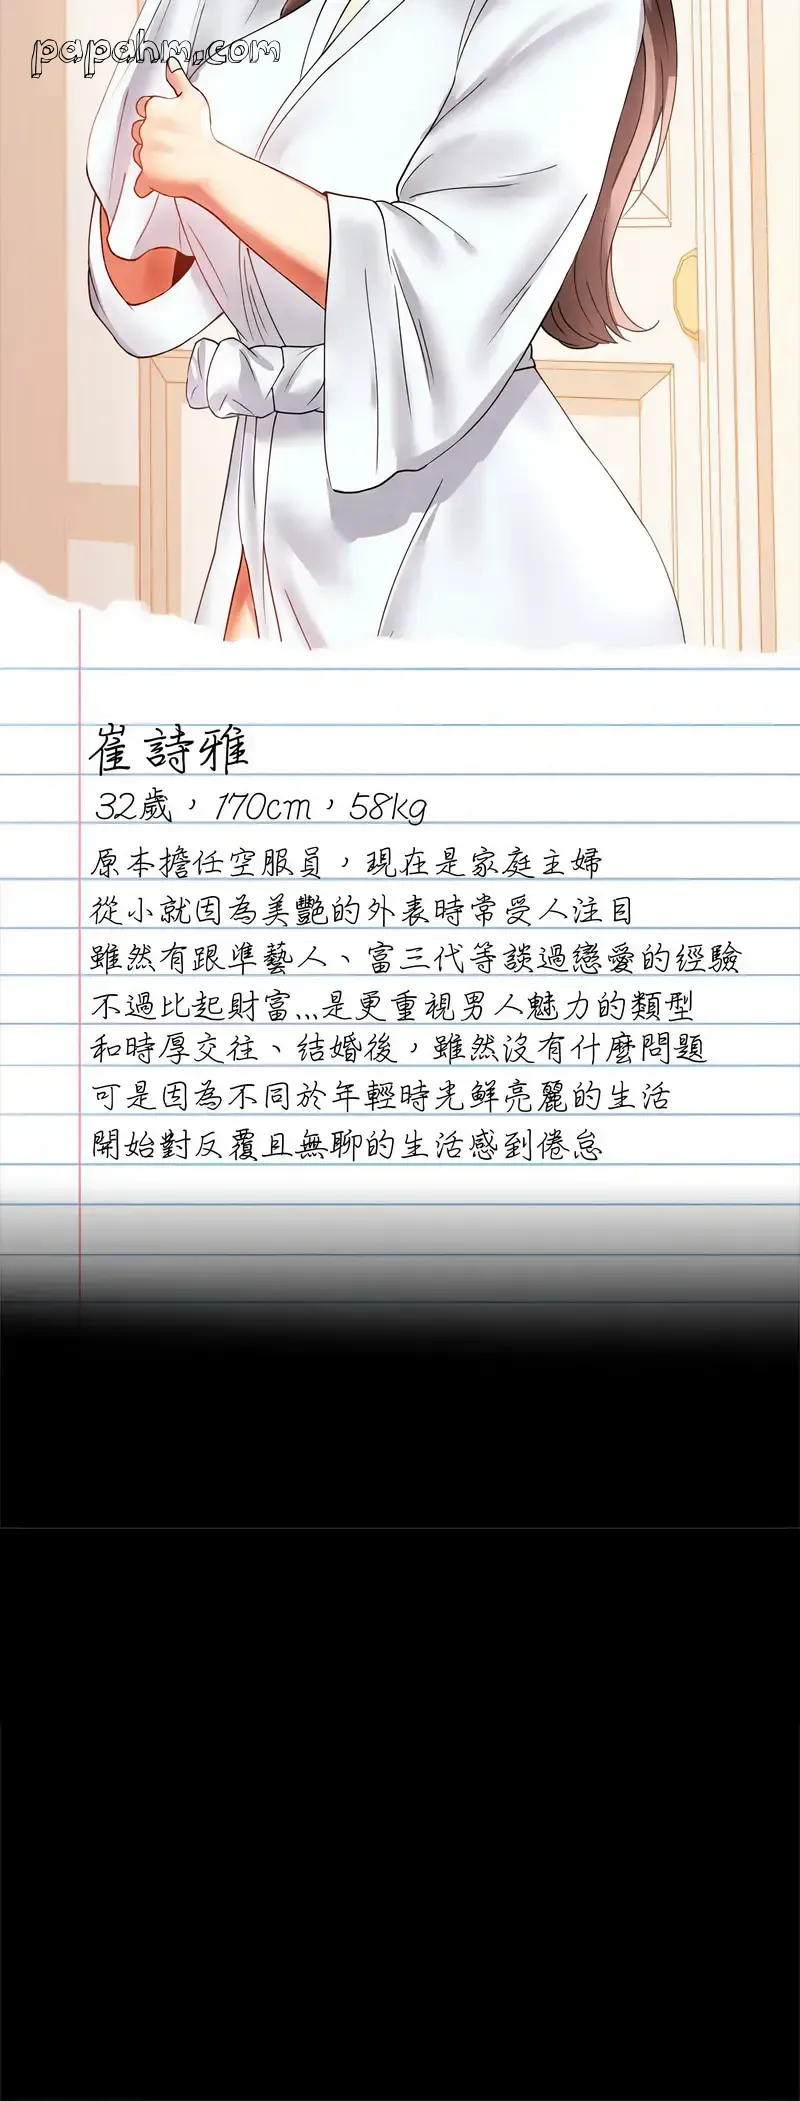 papahm.com
崔詩雅
32歲，170cm，58kg
原本擔任空服員，現在是家庭主婦
從小就因為美艷的外表時常受人注目
雖然有跟準藝人、富三代等談過戀愛的經驗
不過比起財富...是更重視男人魅力的類型
和時厚交往、結婚後，雖然沒有什麼問題
可是因為不同於年輕時光鮮亮麗的生活
開始對反覆且無聊的生活感到倦怠